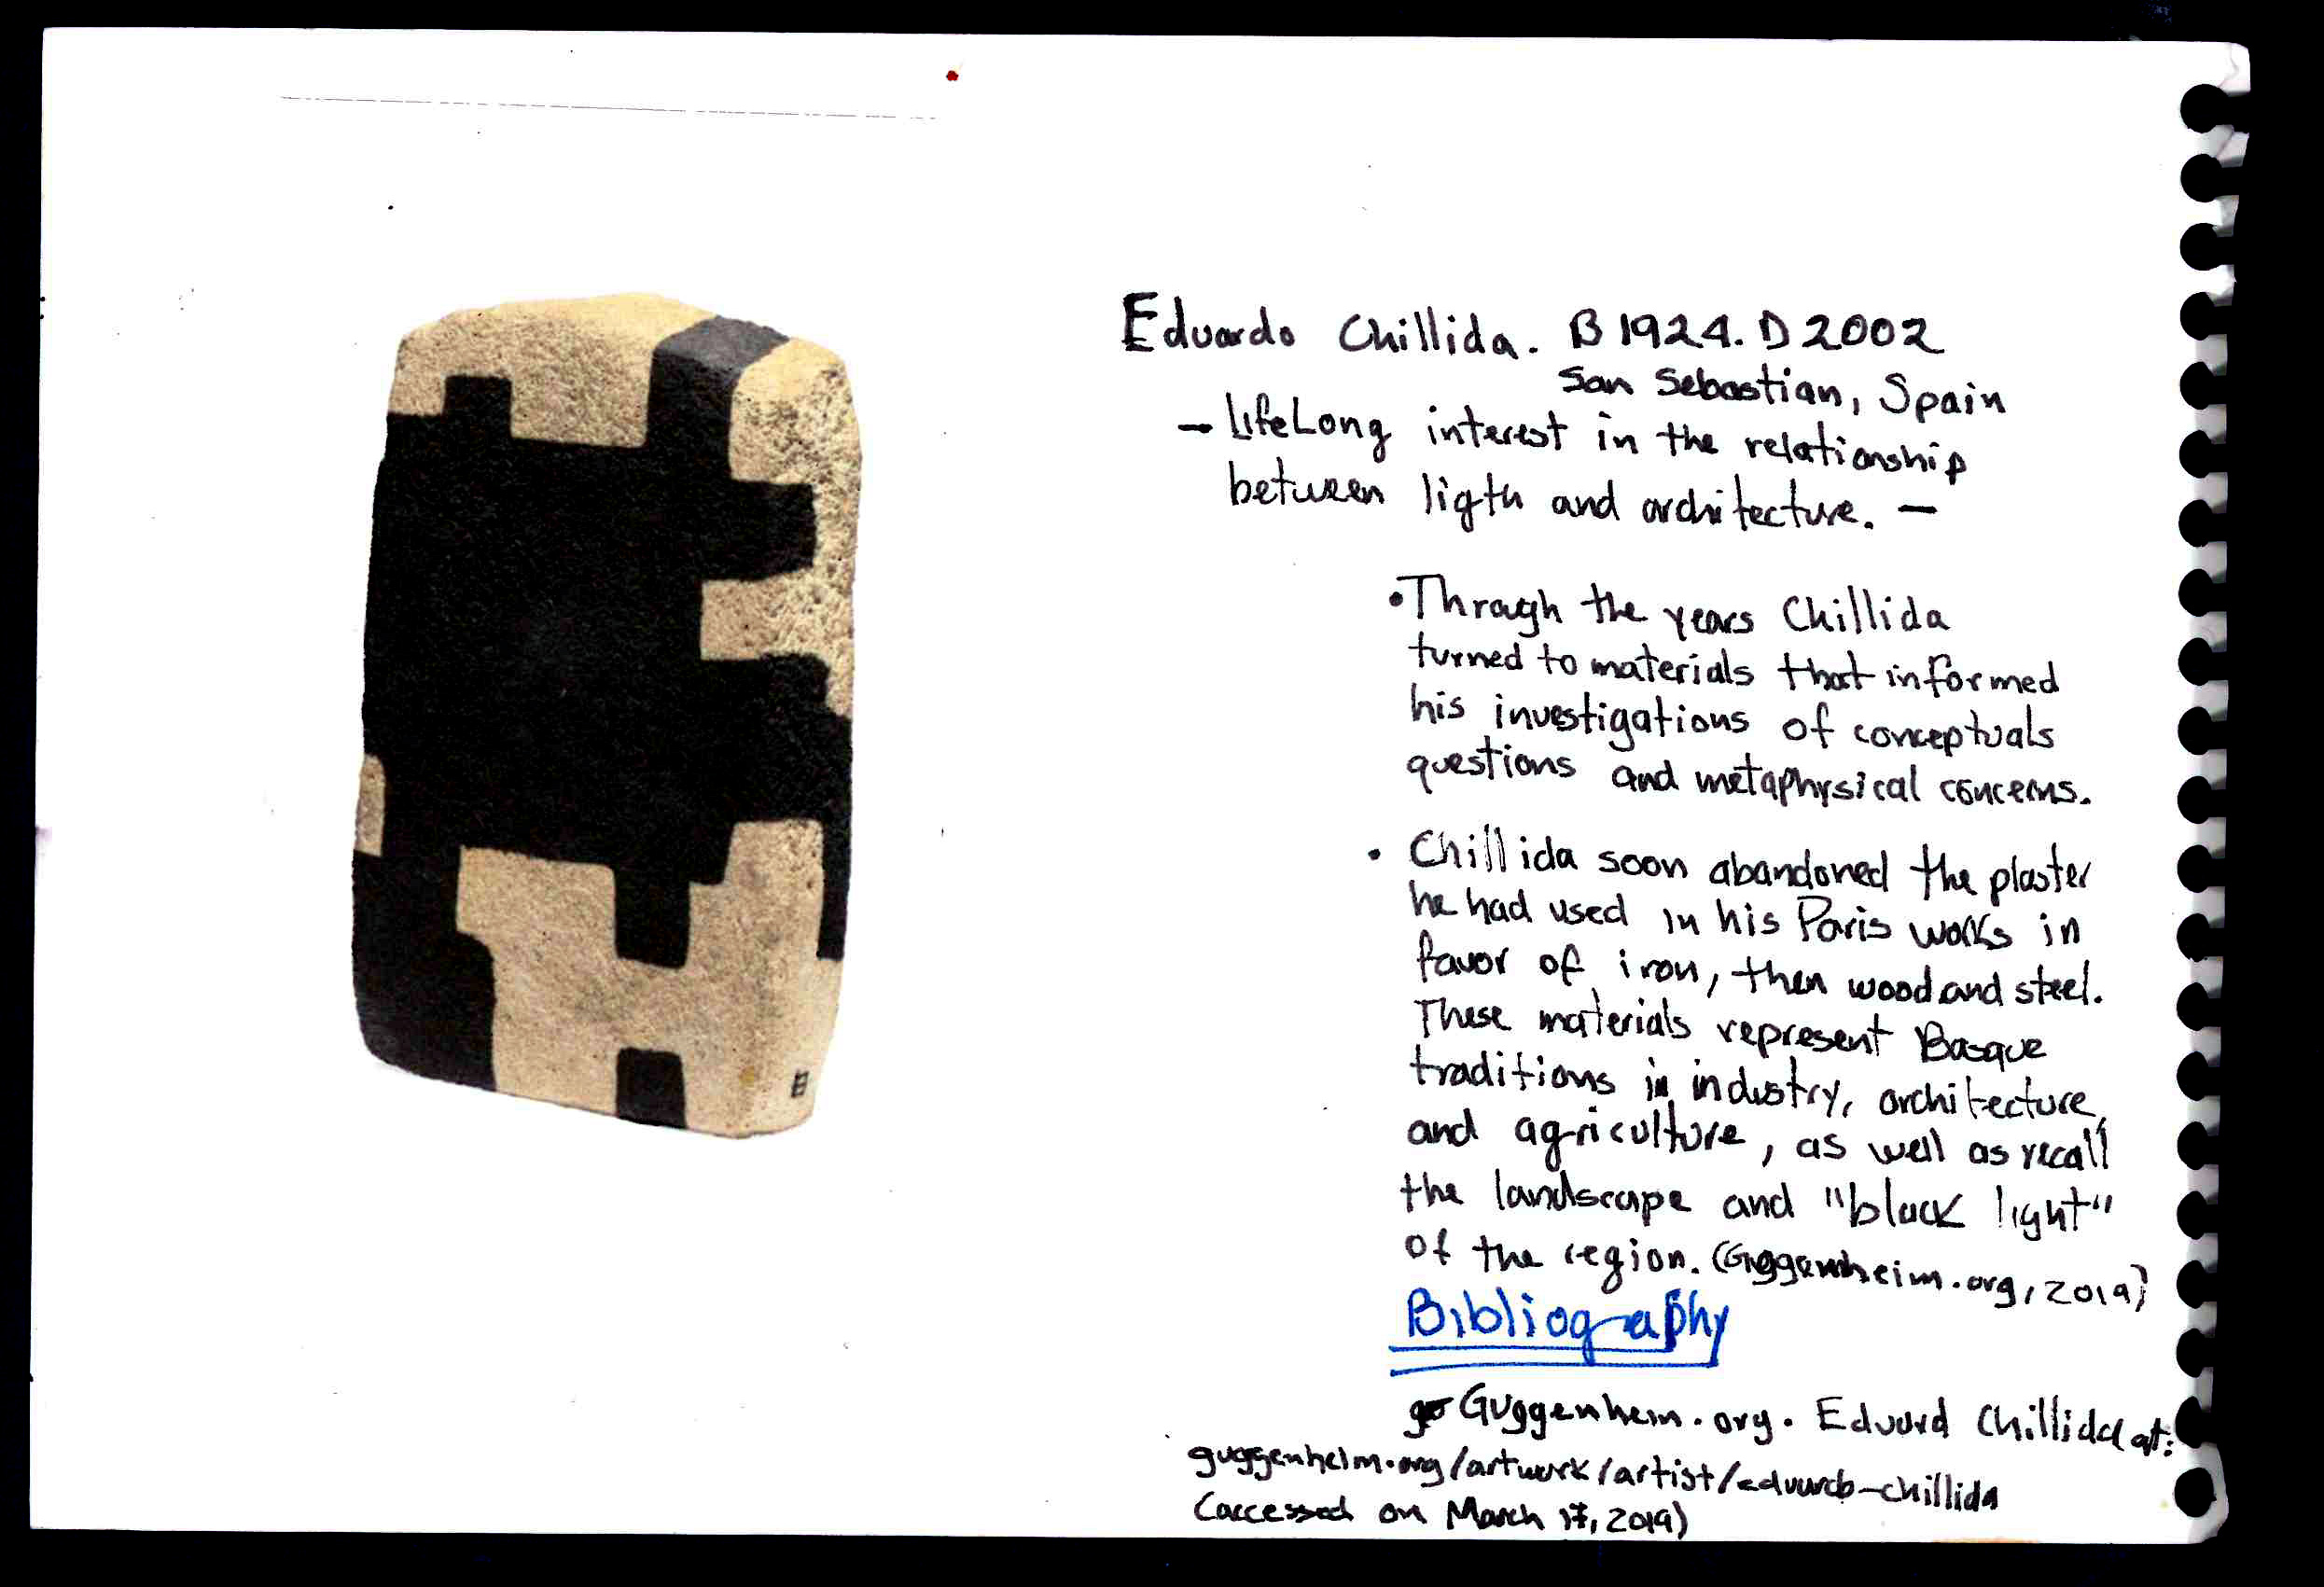 Eduardo Chillida. B 1924. D 2002
San Sebastian, Spain
- LifeLong interest in the relationship
between ligth and architecture. -
• Through the years Chillida
turned to materials that informed
his investigations of conceptuals
questions and metaphysical concerns.
• Chillida soon abandoned the plaster
he had used in his Paris works in
favor of iron, then wood and steel.
These materials represent Basque
traditions in industry, architecture,
and agriculture, as well as recall
the landscape and "black light"
of the region. (Guggenheim.org, 2019)
Bibliography
Guggenheim.org. Eduard Chillida at:
guggenheim.org/artwork/artist/eduardo-chillida
(accessed on March 17, 2019)